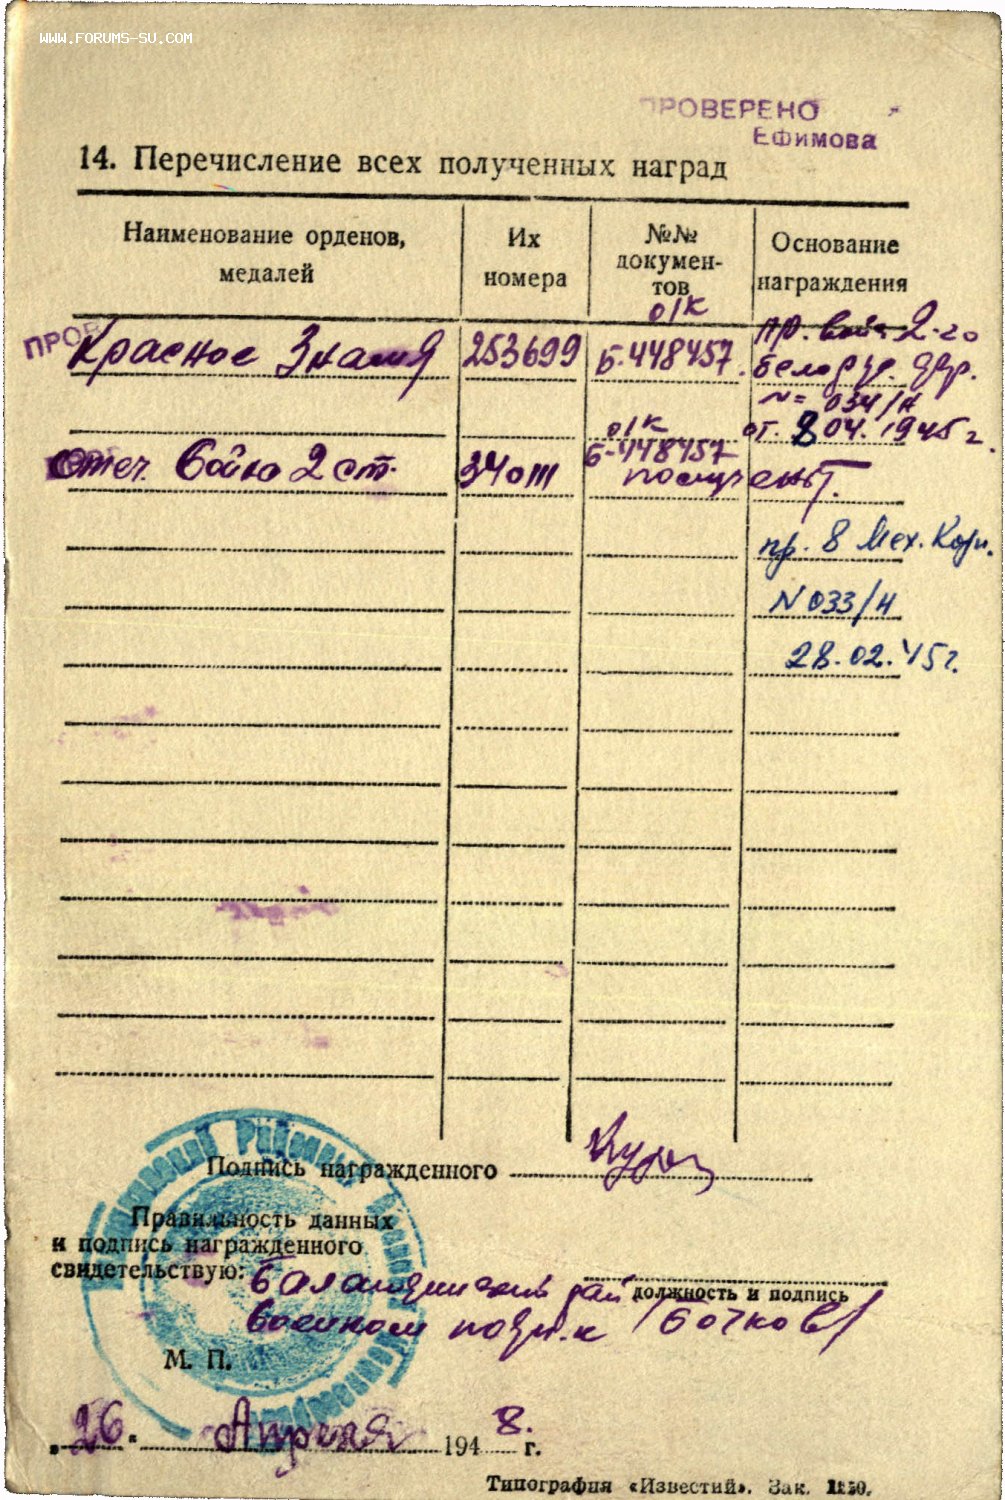 WWW.FORUMS-SU.COM
ПРОВЕРЕНО
Ефимова
14. Перечисление всех полученных наград
Наименование орденов, медалей
Их номера
№№ докумен-тов
Основание награждения
о/к
ПРОВ
Красное Знамя 253699 Б-448457
пр. 2-го
Белорус. фр.
N= 034/н
от. 8 04. 1945 г
о/к
Отеч. войны 2 ст. Б-448457
пр. 8 Мех. Корп.
N 033/н
28.02.45 г.
Подпись награжденного
Правильность данных
и подпись награжденного
свидетельствую:
должность и подпись
Баландинский рай
военком подп-к /Бочков/
М. П.
"26" Апреля 1948. г.
Типография «Известий». Зак. 1250.